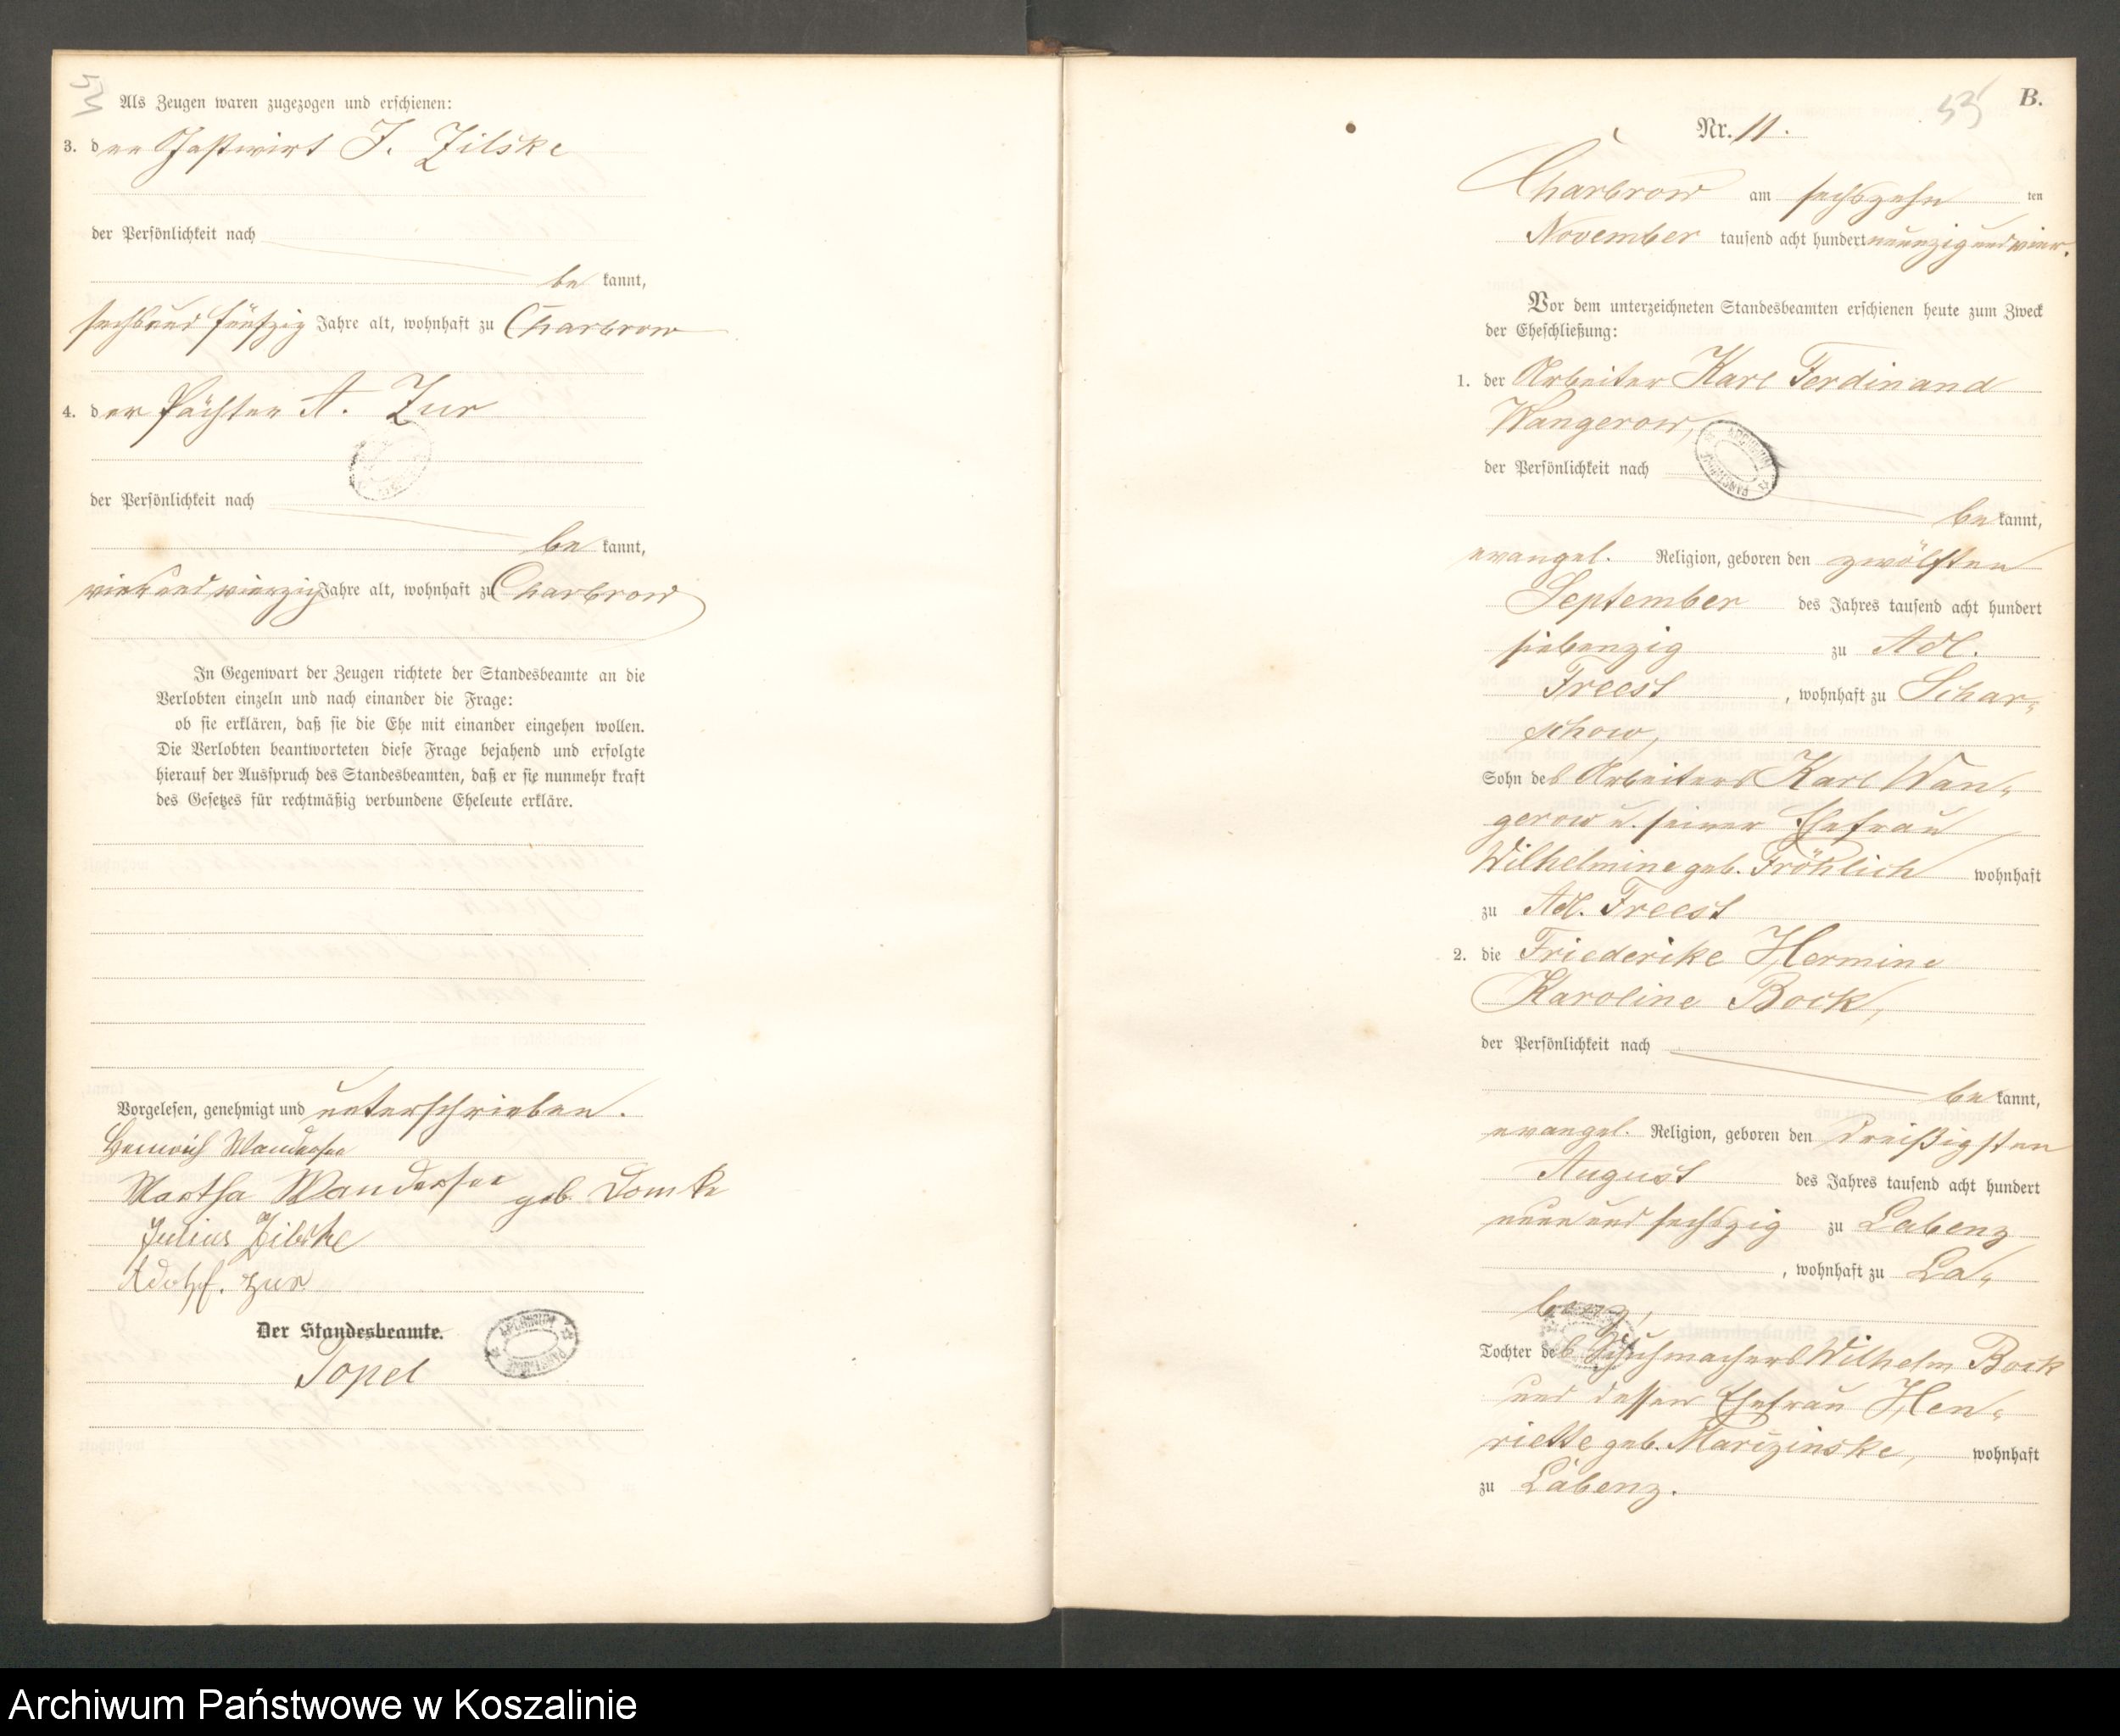 Als Zeugen waren zugezogen und erschienen:
3. der Gastwirt J. Zilske
der Persönlichkeit nach
be kannt,
sechsund fünfzig Jahre alt, wohnhaft zu Charbrow
4. der Pächter A. Zur
der Persönlichkeit nach
be kannt,
vierundvierzig Jahre alt, wohnhaft zu Charbrow
In Gegenwart der Zeugen richtete der Standesbeamte an die
Verlobten einzeln und nach einander die Frage:
ob sie erklären, daß sie die Ehe mit einander eingehen wollen.
Die Verlobten beantworteten diese Frage bejahend und erfolgte
hierauf der Ausspruch des Standesbeamten, daß er sie nunmehr kraft
des Gesetzes für rechtmäßig verbundene Eheleute erkläre.
Vorgelesen, genehmigt und unterschrieben.
Heinrich Wandersee
Martha Wandersee geb. Domke
Julius Zilske
Adolf. Zur
Der Standesbeamte.
Topel
B.
Nr. 11.
Charbrow am sechszehn ten
November tausend acht hundert neunzig und vier.
Vor dem unterzeichneten Standesbeamten erschienen heute zum Zweck
der Eheschließung:
1. der Arbeiter Karl Ferdinand
Wangerow,
der Persönlichkeit nach
be kannt,
evangel. Religion, geboren den zwölften
September des Jahres tausend acht hundert
siebenzig zu Adl.
Freest, wohnhaft zu Schar-
schow,
Sohn des Arbeiters Karl Wan-
gerow u. seiner Ehefrau
Wilhelmine geb. Fröhlich wohnhaft
zu Adl. Freest
2. die Friederike Hermine
Karoline Bock,
der Persönlichkeit nach
be kannt,
evangel. Religion, geboren den dreißigsten
August des Jahres tausend acht hundert
neun und sechszig zu Labenz
, wohnhaft zu La-
benz,
Tochter des Schuhmachers Wilhelm Bock
und dessen Ehefrau Hen-
riette geb. Marizinske, wohnhaft
zu Labenz.
Archiwum Państwowe w Koszalinie